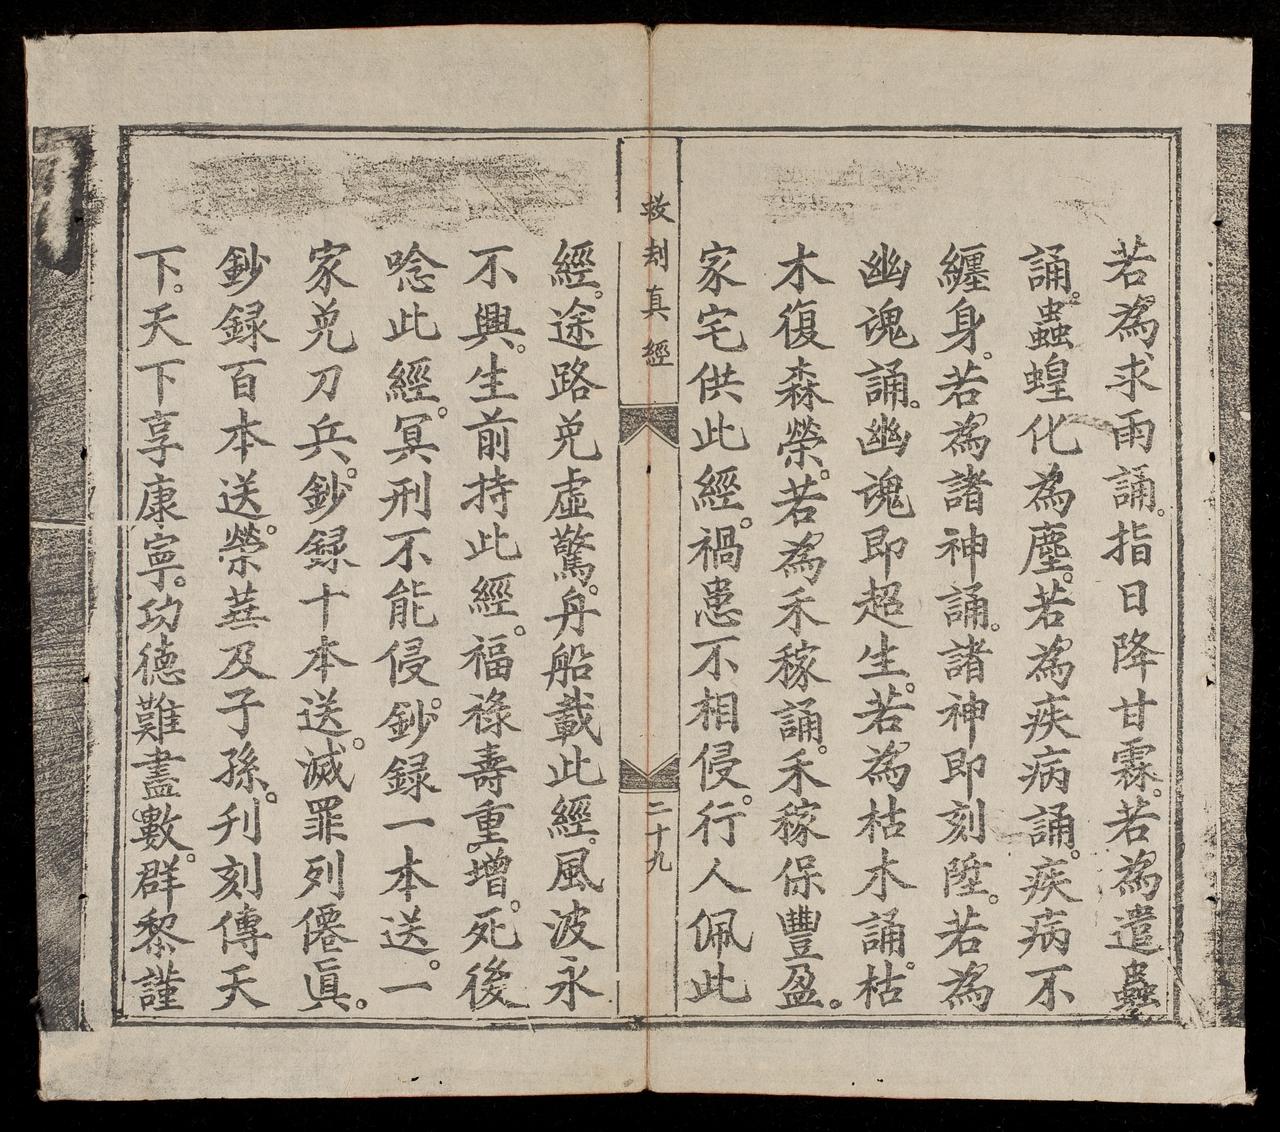 若為求雨誦。指日降甘霖。若為遣蟲
誦。蟲蝗化為塵。若為疾病誦。疾病不
纏身。若為諸神誦。諸神即刻陞。若為
幽魂誦。幽魂即超生。若為枯木誦。枯
木復森榮。若為禾稼誦。禾稼保豐盈。
家宅供此經。禍患不相侵。行人佩此
救刦真經
二十九
經。途路免虛驚。舟船載此經。風波永
不興。生前持此經。福祿壽重增。死後
唸此經。冥刑不能侵。鈔録一本送。一
家免刀兵。鈔録十本送。滅罪列僊眞。
鈔録百本送。榮華及子孫。刋刻傳天
下。天下享康寧。功德難盡數。群黎謹